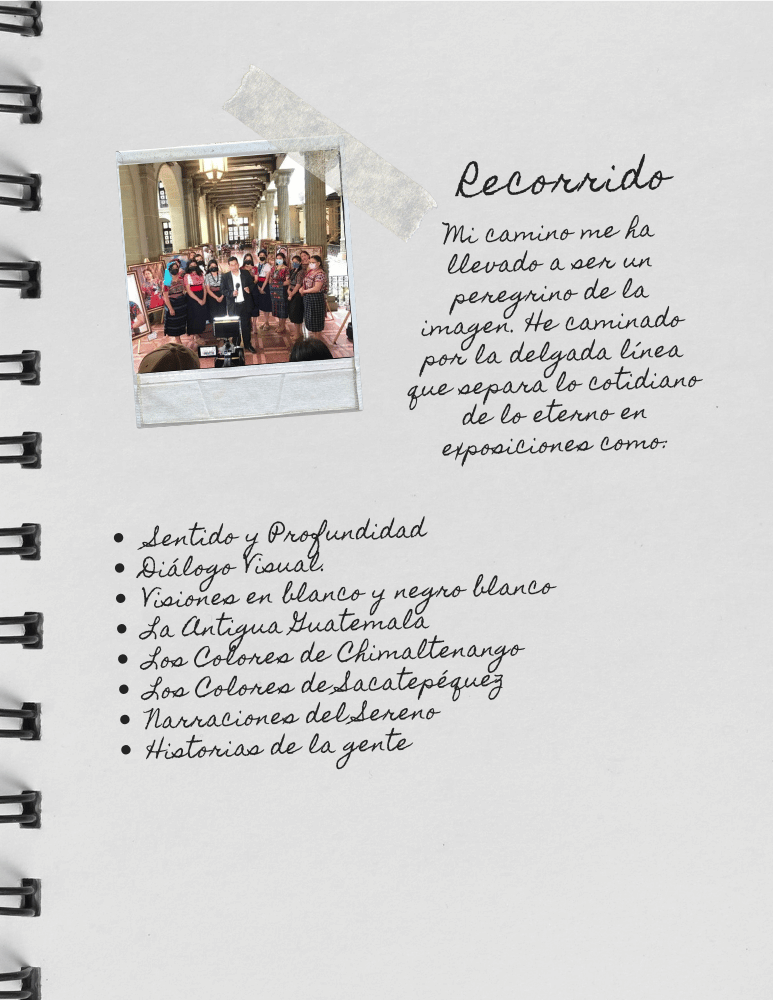 Recorrido
Mi camino me ha
llevado a ser un
peregrino de la
imagen. He caminado
por la delgada línea
que separa lo cotidiano
de lo eterno en
exposiciones como:
• Sentido y Profundidad
• Diálogo Visual.
• Visiones en blanco y negro blanco
• La Antigua Guatemala
• Los Colores de Chimaltenango
• Los Colores de Sacatepéquez
• Narraciones del Sereno
• Historias de la gente